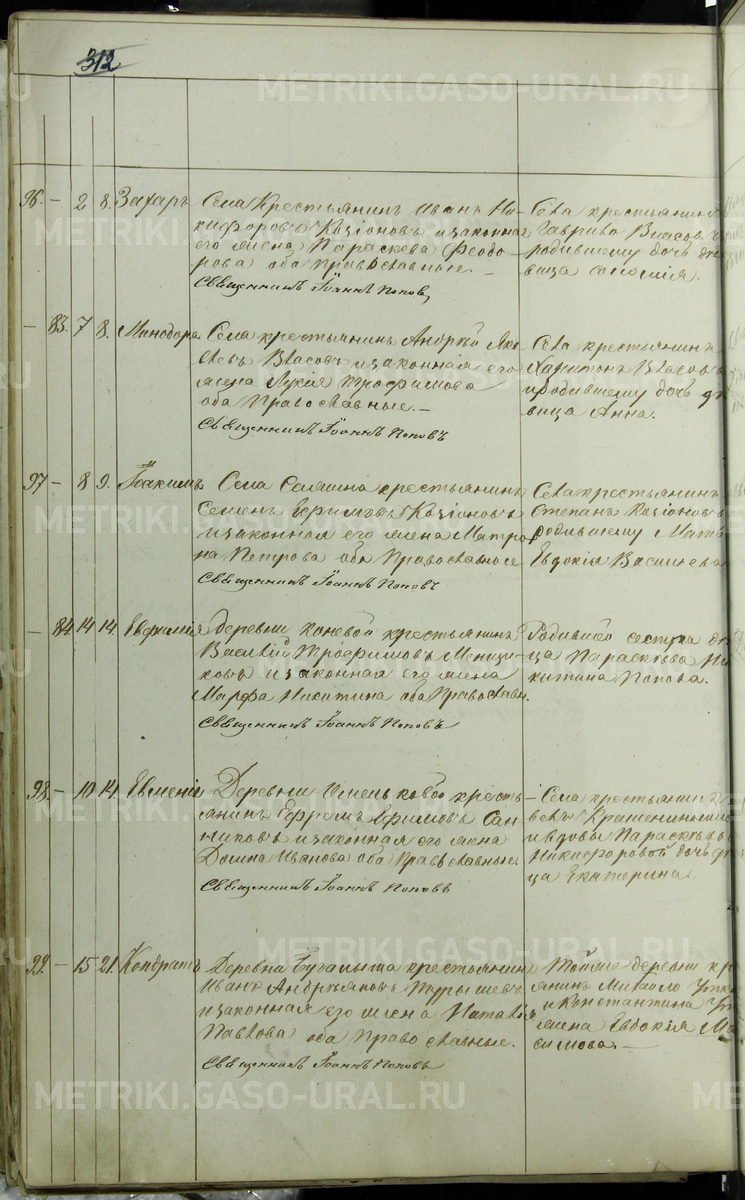 312
METRIKI.GASO-URAL.RU
96. — 2 8. Захаръ
Села Крестьянинъ Иванъ Ни-
кифоровъ Козіоновъ и законная
его жена Параскева Феодо-
рова оба православные. —
Священникъ Іоаннъ Поповъ
Села крестьянинъ
Гаврило Власовъ
родившему дочь дѣ-
вица
— 83. 7 8. Минодора
Села крестьянинъ Андрей Яко
влевъ Власовъ и законная его
жена Лукія Трофимова
оба православные. —
Священникъ Іоаннъ Поповъ
Села крестьянинъ
Харитонъ Власовъ
и родившему дочь дѣ
вица Анна.
97 — 8 9. Іоакимъ
Села крестьянинъ
Семенъ Ефимовъ Козіоновъ
и законная его жена Матро
на Петрова оба православные
Священникъ Іоаннъ Поповъ
Села крестьянинъ
Степанъ Козіоновъ
родившему Мать
Евдокія Васильева
— 84. 14 14. Евфимія
Деревни Коневой крестьянинъ
Василій Трофимовъ
ковъ и законная его жена
Марфа Никитина оба православн.
Священникъ Іоаннъ Поповъ
Родившей сестра дѣ
ца Параскѣва Ни
китина Попова.
98. — 10 14. Евменій
Деревни крестья
янинъ Ефремъ Ефимовъ Сан
никовъ и законная его жена
Домна Иванова оба православные.
Священникъ Іоаннъ Поповъ
Села крестьянинъ
и вдовы Параскѣвы
Никифоровой дочь дѣ
ца Екатерина.
99. — 15 21. Кондратъ
Деревни Бугалыша крестьянинъ
Иванъ Андреяновъ Турышевъ
и законная его жена Наталія
Павлова оба православные.
Священникъ Іоаннъ Поповъ
Тойже деревни кре
янинъ Михайло
и Константина
жена Евдокія Ма
симова. —